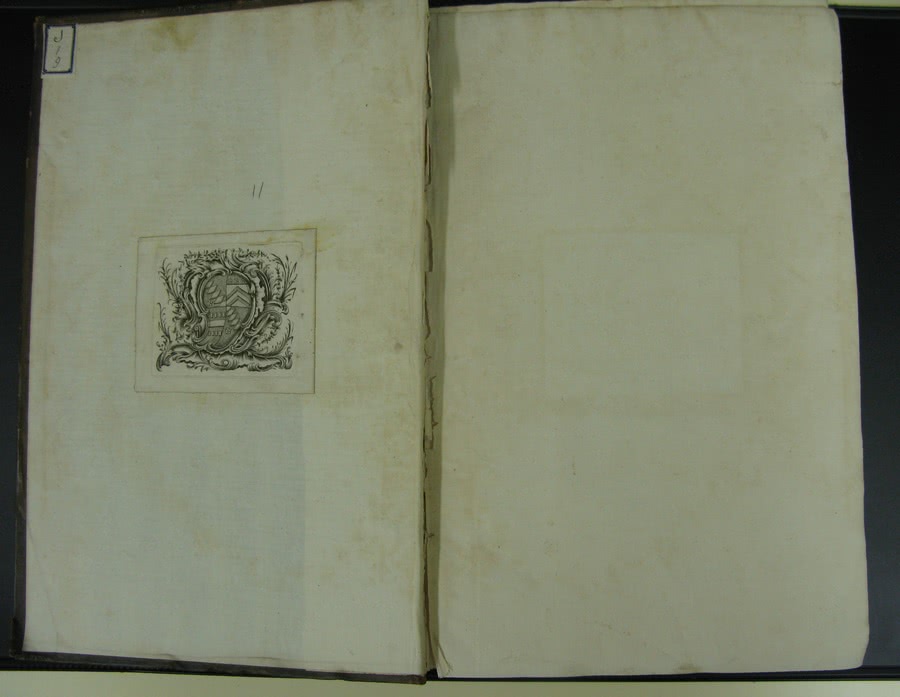 J
19
11